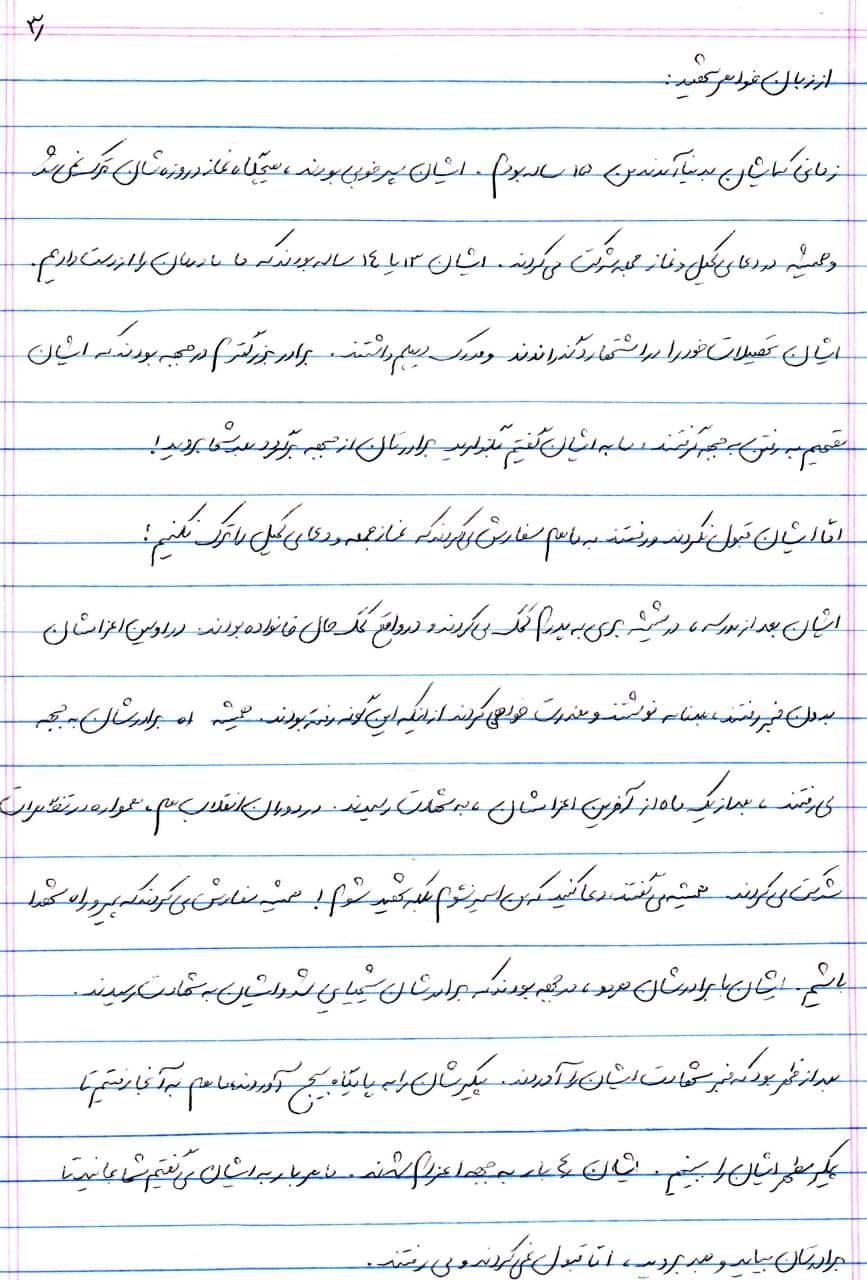 ۳
از زبان خواهر شهید:
زمانی که ایشان بدنیا آمدند من ۱۵ ساله بودم. ایشان پسر خوبی بودند، هیچگاه نماز و روزه شان ترک نمی شد
و همیشه در دعای کمیل و نماز جمعه شرکت می کردند. ایشان ۱۳ یا ۱٤ ساله بودند که ما مادرمان را از دست دادیم.
ایشان تحصیلات خود را در اشتهارد گذراندند و مدرک دیپلم داشتند. برادر بزرگترم در جبهه بودند که ایشان
تصمیم به رفتن به جبهه گرفتند، ما به ایشان گفتیم بگذارید برادرتان از جبهه برگردد بعد شما بروید!
امّا ایشان قبول نکردند و رفتند به ما هم سفارش می کردند که نماز جمعه و دعای کمیل را ترک نکنیم!
ایشان بعد از مدرسه، در شیشه بری به پدرم کمک می کردند و در واقع کمک حال خانواده بودند. در اولین اعزامشان
بدون خبر رفتند، بعد نامه نوشتند و معذرت خواهی کردند از اینکه این گونه رفته بودند. همیشه برادرشان به جبهه
می رفتند، بعد از یک ماه از آخرین اعزامشان، به شهادت رسیدند. در دوران انقلاب هم، همواره در تظاهرات
شرکت می کردند. همیشه می گفتند، دعا کنید که من اسیر نشوم بلکه شهید شوم! همیشه سفارش می کردند که پیرو راه شهدا
باشیم. ایشان با برادرشان هر دو، در جبهه بودند که برادرشان شیمیایی شد و ایشان به شهادت رسیدند.
بعد از ظهر بود که خبر شهادت ایشان را آوردند. پیکرشان را به پایگاه بسیج آوردند، ما هم به آنجا رفتیم تا
پیکر مطهر ایشان را ببینیم. ایشان ٤ بار به جبهه اعزام شدند. ما هر بار به ایشان می گفتیم شما بمانید تا
برادرتان بیاید و بعد بروید، امّا قبول نمی کردند و می رفتند.